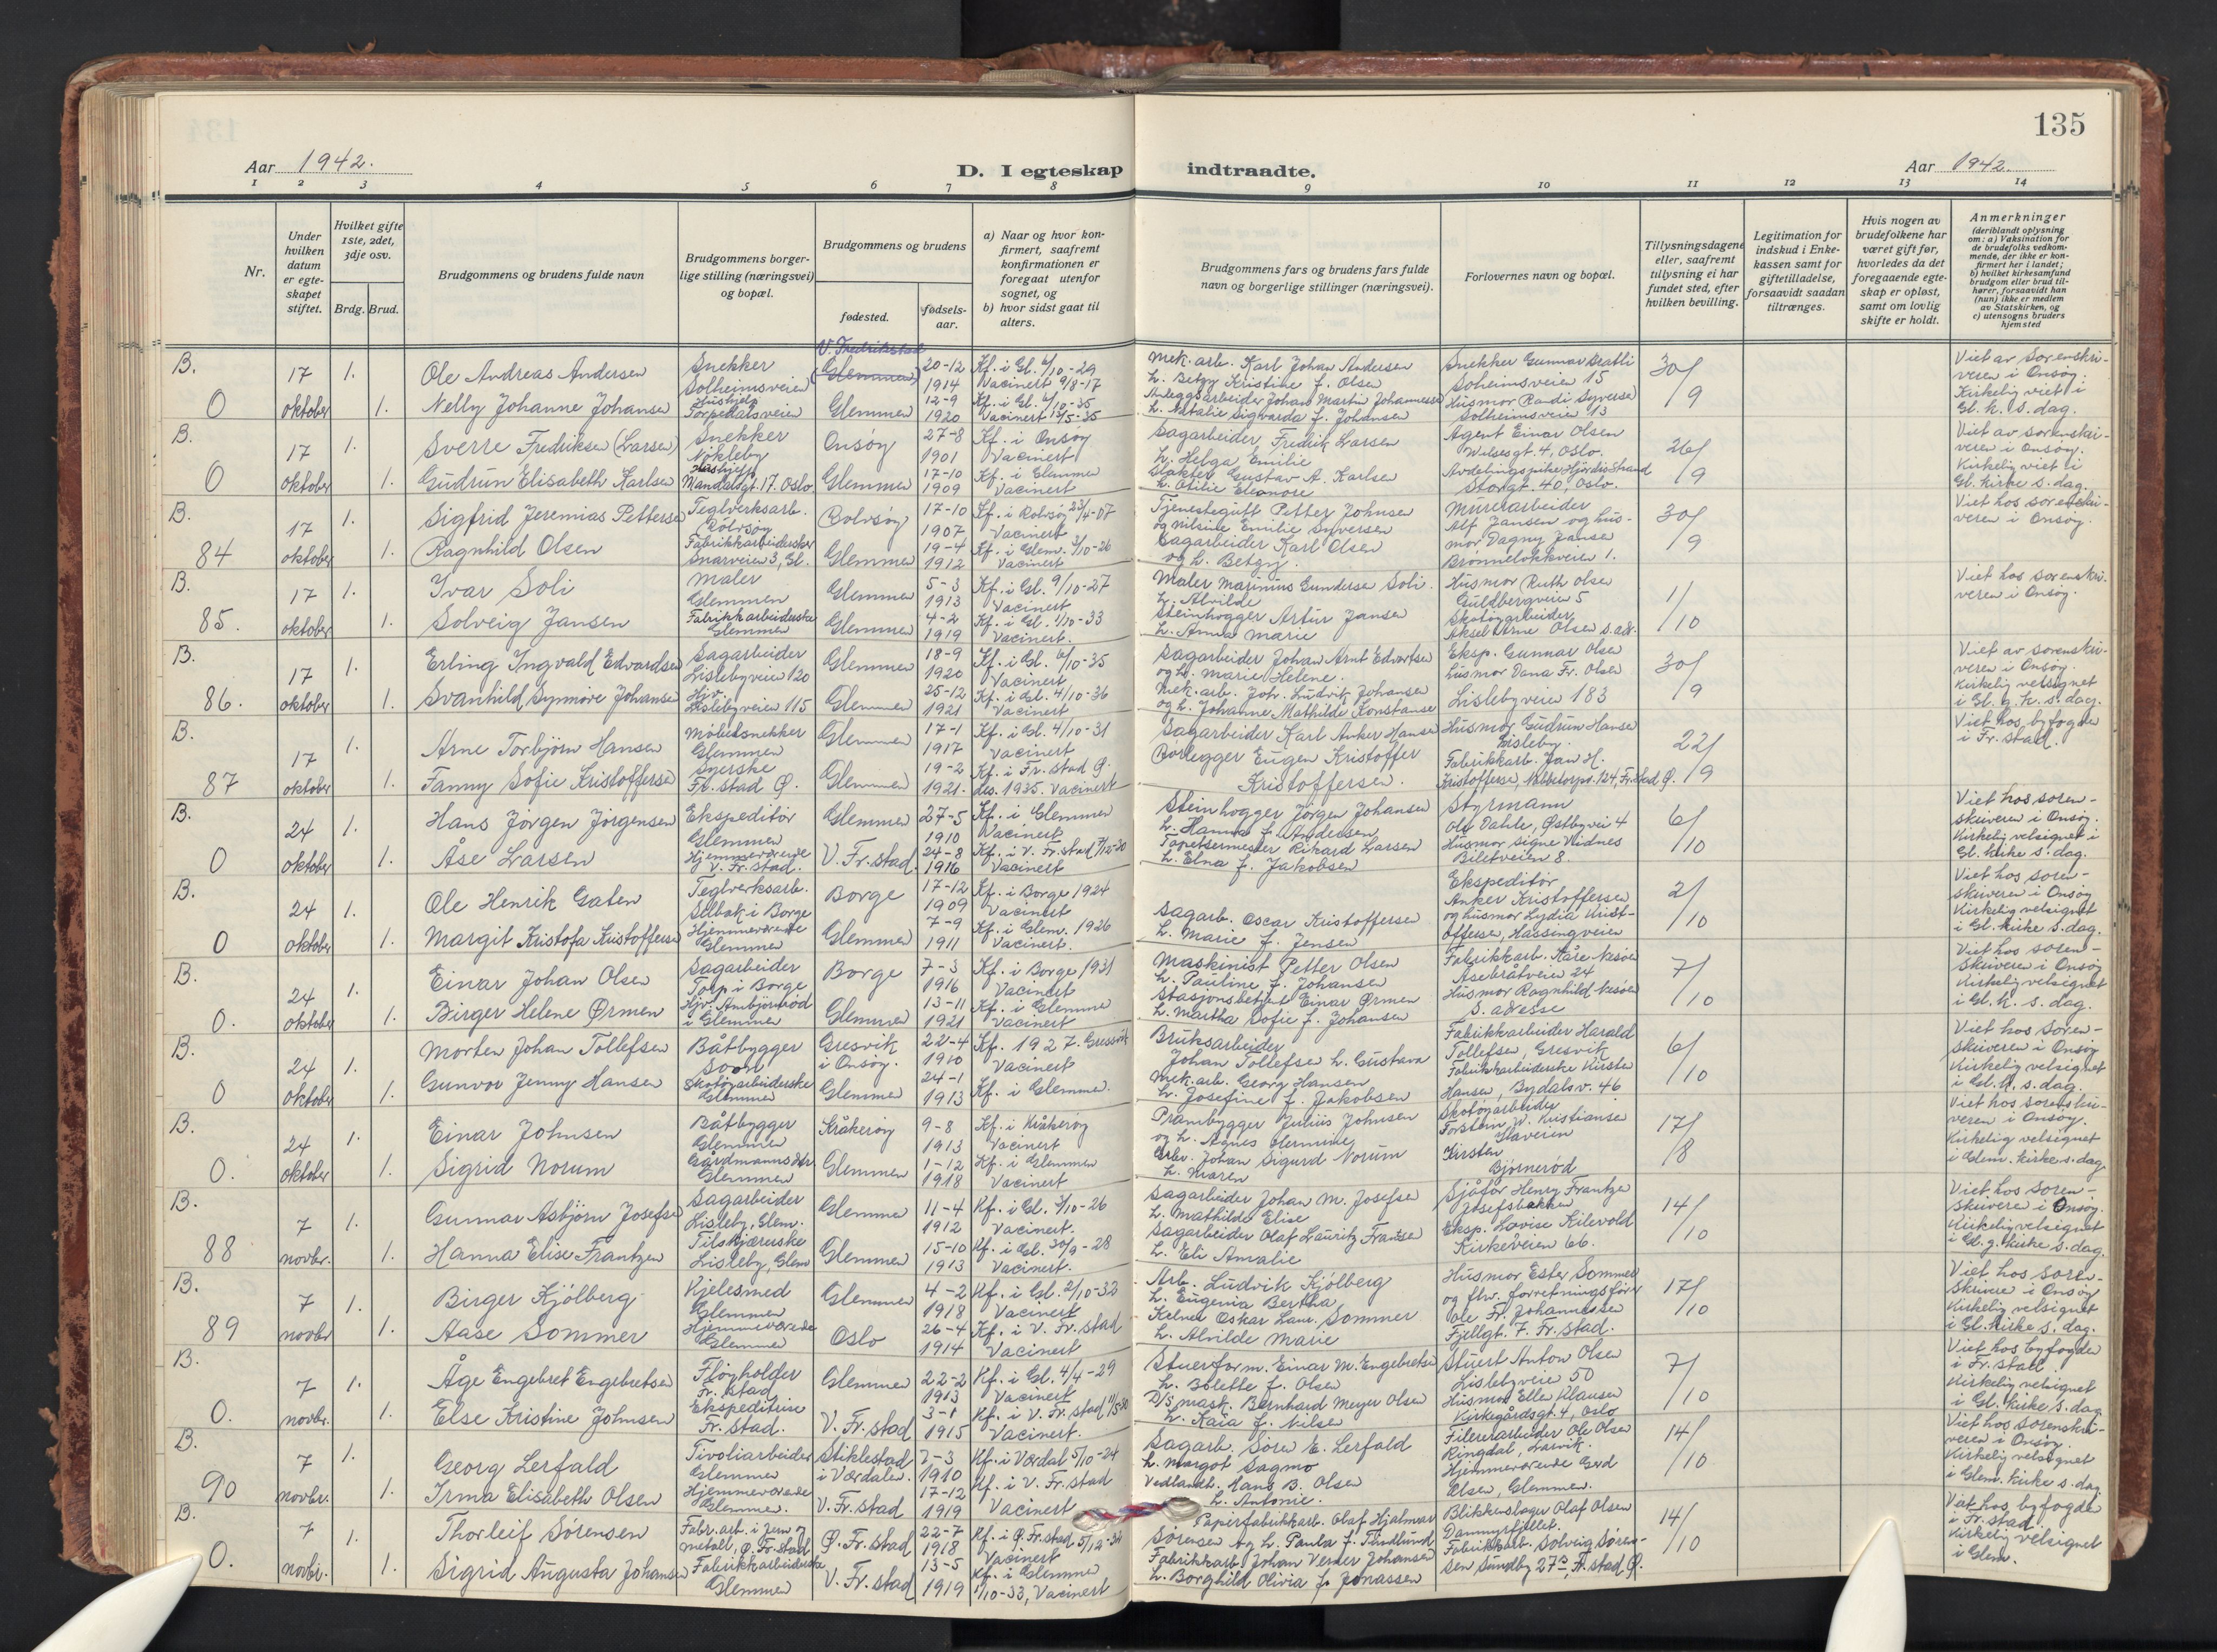 135
Aar 1942.
D. Iegteskap indtraadte.
Aar 1942.
1 2 3 4 5 6 7 8 9 10 11 12 13 14
Nr.
Under hvilken datum er egteskapet stiftet.
Hvilket gifte 1ste, 2det, 3dje osv.
Brdg. Brud.
Brudgommens og brudens fulde navn
Brudgommens borgerlige stilling (næringsvei) og bopæl.
Brudgommens og brudens
fødested.
fødselsaar.
a) Naar og hvor konfirmert, saafremt konfirmationen er foregaat utenfor sognet, og
b) hvor sidst gaat til alters.
Brudgommens fars og brudens fars fulde navn og borgerlige stillinger (næringsvei).
Forlovernes navn og bopæl.
Tillysningsdagene eller, saafremt tillysning ei har fundet sted, efter hvilken bevilling.
Legitimation for indskud i Enkekassen samt for giftetilladelse, forsaavidt saadan tiltrænges.
Hvis nogen av brudefolkene har været gift før, hvorledes da det foregaaende egteskap er opløst, samt om lovlig skifte er holdt.
Anmerkninger (deriblandt oplysning om: a) Vaksination for de brudefolks vedkommende, der ikke er konfirmert her i landet; b) hvilket kirkesamfund brudgom eller brud tilhører, forsaavidt han (hun) ikke er medlem av Statskirken, og c) utensogns bruders hjemsted
B. 0 17 oktober 1. 1.
Ole Andreas Andersen Snekker Solheimsveien V. Fredrikstad (Glemmen) 20-12 1914 Kf. i Gl. 6/10-29 Vacinert 9/8-17
Nelly Johanne Johansen Hushjelp Torpedalsveien Glemmen 12-9 1920 Kf. i Gl. 6/10-35 Vacinert 13/5-35
Mek. arb. Karl Johan Andersen h. Betzy Kristine f. Olsen
Anleggsarbeider Johan Martin Johannessen h. Natalie Sigvarda f. Johansen
Snekker Gunnar Bratli Solheimsveien 15 Husmor Randi Syversen Solheimsveien 13
30/9
Viet av Sorenskriveren i Onsøy. Kirkelig viet i Gl. k. s. dag.
B. 0 17 oktober 1. 1.
Sverre Fredriksen (Larsen) Snekker Nøkleby Onsøy 27-8 1901 Kf. i Onsøy Vacinert
Gudrun Elisabeth Karlsen Hushjelp Mandalsgt. 17. Oslo. Glemmen 17-10 1909 Kf. i Glemmen Vacinert
Sagarbeider Fredrik Larsen h. Helga Emilie
Slakter Gustav A. Karlsen h. Otilie Eleonore
Agent Einar Olsen Wilsesgt. 4, Oslo. Avdelingspike Hjørdis Strand Storgt. 40, Oslo.
26/9
Viet av sorenskriveren i Onsøy. Kirkelig viet i Gl. kirke s. dag.
B. 84 17 oktober 1. 1.
Sigfrid Jeremias Pettersen Teglverksarb. Rolvsøy Rolvsøy 17-10 1907 Kf. i Rolvsøy 23/4-07 Vacinert
Ragnhild Olsen Fabrikkarbeiderske Snarveien 3, Gl. Glemmen 19-4 1912 Kf. i Glem. 3/10-26 Vacinert
Tjenestegutt Petter Johnsen og Nilsine Emilie Syversen
Sagarbeider Karl Olsen og h. Betzy.
Murerarbeider Alf Jansen og husmor Dagny Jansen Brønneløkkveien 1.
30/9
Viet hos sorenskriveren i Onsøy.
B. 85. 17 oktober 1. 1.
Ivar Soli Maler Glemmen Glemmen 5-3 1913 Kf. i Gl. 9/10-27 Vacinert
Solveig Jansen Fabrikkarbeiderske Glemmen Glemmen 4-2 1919 Kf. i Gl. 1/10-33 Vacinert.
Maler Marinius Gundersen Soli. h. Alvilde
Steinhogger Artur Jansen h. Anna Marie
Husmor Ruth Olsen Guldbergveien 5 Skotøyarbeider Aksel Arne Olsen s. adr.
1/10
Viet hos sorenskriveren i Onsøy.
B. 86. 17 oktober 1. 1.
Erling Ingvald Edvardsen Sagarbeider Lislebyveien 120 Glemmen 18-9 1920 Kf. i Gl. 6/10-35 Vacinert
Svanhild Synnøve Johansen Hjv. Lislebyveien 115 Glemmen 25-12 1921 Kf. i Gl. 4/10-36 Vacinert
Sagarbeider Johan Arnt Edvartsen og h. Marie Helene.
Mek. arb. Joh. Ludvik Johansen og h. Johanne Mathilde Konstanse
Eksp. Gunnar Olsen husmor Dana Fr. Olsen Lislebyveien 183
30/9
Viet av sorenskriveren i Onsøy. Kirkelig velsignet i Gl. g. k. s. dag.
B. 87 17 oktober 1. 1.
Arne Torbjørn Hansen Møbelsnekker Glemmen Glemmen 17-1 1917 Kf. i Gl. 4/10-31 Vacinert
Fanny Sofie Kristoffersen Syerske Fr. stad Ø. Glemmen 19-2 1921. Kf. i Fr. stad Ø. des. 1935. Vacinert
Sagarbeider Karl Anker Hansen
Rørlegger Eugen Kristoffer Kristoffersen.
Husmor Gudrun Hansen Lisleby. Fabrikkarb. Jan H. Kristoffersen, Nabbetorpv. 124, Fr. stad Ø.
22/9
Viet hos byfogden i Fr. stad.
B. 0 24 oktober 1. 1.
Hans Jørgen Jørgensen Ekspeditør Glemmen Glemmen 27-5 1910 Kf. i Glemmen Vacinert
Åse Larsen Hjemmeværende V. Fr. stad. V. Fr. stad. 24-8 1916 Kf. i V. Fr. stad 7/12-30 Vacinert
Steinhogger Jørgen Johansen h. Hanna f. Andersen
Tapetsermester Rikard Larsen h. Elna f. Jakobsen
Styrmann Ole Dahle, Østbyvei 4 Husmor Signe Widnes Biletveien 8.
6/10
Viet hos sorenskriveren i Onsøy. Kirkelig velsignet i Gl. kirke s. dag.
B. 0 24 oktober 1. 1.
Ole Henrik Gaten Teglverksarb. Selbak i Borge Borge 17-12 1909 Kf. i Borge 1924 Vacinert
Margit Kristofa Kristoffersen Hjemmeværende Glemmen Glemmen 7-9 1911 Kf. i Glem. 1926 Vacinert.
Sagarb. Oscar Kristoffersen h. Marie f. Jensen
Ekspeditør Anker Kristoffersen og husmor Lydia Kristoffersen, Hassingveien
2/10
Viet hos sorenskriveren i Onsøy Kirkelig velsignet i Gl. kirke s. dag.
B. 0. 24 oktober 1. 1.
Einar Johan Olsen Sagarbeider Torp i Borge Borge 7-3 1916 Kf. i Borge 1931 Vacinert
Birger Helene Ørmen Hjv. Ambjørnrød i Glemmen Glemmen 13-11 1921 Kf. i Glemmen Vacinert
Maskinist Petter Olsen h. Pauline f. Johansen
Stasjonsbetjet Einar Ørmen h. Martha Sofie f. Johansen
Fabrikkarb. Kåre Næsøen Åsebråtveien 24 Husmor Ragnhild Næsøen s. adresse
7/10
Viet hos sorenskriveren i Onsøy Kirkelig velsignet i Gl. k. s. dag.
B. 0 24 oktober 1. 1.
Morten Johan Tollefsen Båtbygger Soon Gresvik i Onsøy. 22-4 1910 Kf. 1927. Gressvik Vacinert
Gunvor Jenny Hansen Skotøyarbeiderske Glemmen Glemmen 24-1 1913 Kf. i Glemmen.
Bruksarbeider Johan Tollefsen h. Gustava
Mek. arb. Georg Hansen h. Josefine f. Jakobsen
Fabrikkarbeider Harald Tollefsen, Gresvik Fabrikkarbeiderske Kirsten Hansen, Bydalsv. 46
6/10
Viet hos Sorenskriveren i Onsøy Kirkelig velsignet i Gl. k. s. dag.
B. 0. 24 oktober 1. 1.
Einar Johnsen Båtbygger Glemmen Kråkerøy 9-8 1913 Kf. i Kråkerøy Vacinert
Sigrid Norum Gårdmanns dtr. Glemmen Glemmen 1-12 1918 Kf. i Glemmen Vacinert
Prambygger Julius Johnsen og h. Agnes Hermine
Arb. Johan Sigurd Norum h. Maren
Skotøyarbeider Torstein W. Kristiansen Haveien Kirsten Bjørnerød
17/8
Viet hos sorenskriveren i Onsøy. Kirkelig velsignet i Glem. kirke s. dag.
B. 88 7 novbr. 1. 1.
Gunnar Asbjørn Josefsen Sagarbeider Lisleby, Glem. Glemmen 11-4 1912 Kf. i Gl. 3/10-26 Vacinert.
Hanna Elise Frantzen Tilskjærerske Lisleby, Glem Glemmen 15-10 1913 Kf. i Gl. 30/9-28 Vacinert.
Sagarbeider Johan M. Josefsen h. Mathilde Elise
Sagarbeider Olaf Lauritz Frantzen h. Eli Amalie
Sjåfør Henry Frantzen Josefsbakken Eksp. Lovise Kilevold Kirkeveien 66.
14/10
Viet hos sorenskriveren i Onsøy. Kirkelig velsignet i Gl. g. kirke s. dag.
B. 89 7 novbr 1. 1.
Birger Kjølberg Kjelesmed Glemmen Glemmen 4-2 1918 Kf. i Gl. 2/10-32 Vacinert
Aase Sommer Hjemmeværende Glemmen Oslo 26-4 1914 Kf. i V. Fr. stad Vacinert
Arb. Ludvik Kjølberg h. Eugenia Bertha
Kelner Oskar Laur. Sommer h. Alvilde Marie
Husmor Ester Sommer og fhv. forretningsfører Ole Fr. Johannessen Fjellgt. 7. Fr. stad.
17/10
Viet hos sorenskriveren i Onsøy Kirkelig velsignet i Gl. kirke s. dag.
B. 0. 7 novbr. 1. 1.
Åge Engebret Engebretsen Fløyholder Fr. stad Glemmen 22-2 1913 Kf. i Gl. 4/4-29 Vacinert
Else Kristine Johnsen Ekspeditrise Fr. stad. V. Fr. stad 3-1 1915 Kf. i V. Fr. stad 11/5-30 Vacinert.
Stuerform. Einar M. Engebretsen h. Bolette f. Olsen
D/S mask. Bernhard Meyer Olsen h. Kaia f. Nilsen
Stuert Anton Olsen Lislebyveien 50 Husmor Ellen Klausen Kirkegårdsgt. 4, Oslo
7/10
Viet hos byfogden i Fr. stad. Kirkelig velsignet i Gl. kirke s. dag
B. 90 7 novbr. 1. 1.
Georg Lerfald Tivoliarbeider Glemmen Stiklestad i Værdalen. 7-3 1910 Kf. i Værdal 5/10-24
Irma Elisabeth Olsen Hjemmeværende Glemmen. V. Fr. stad 17-12 1919 Kf. i V. Fr. stad Vacinert
Sagarb. Søren E. Lerfald h. Margot Sagmo
Vedlandh. Hans B. Olsen h. Antonie.
Filererarbeider Ole Olsen Ringdal, Larvik. Hjemmeværende Gerd Olsen, Glemmen.
14/10
Viet hos sorenskriveren i Onsøy. Kirkelig velsignet i Glem. kirke s. dag
B. 0. 7 novbr. 1. 1.
Thorleif Sørensen Fabr. arb. i jern og metall, Ø. Fr. stad Ø. Fr. stad 22-7 1918 Kf. i Ø. Fr. stad 5/12-32 Vacinert
Sigrid Augusta Johansen Fabrikkarbeiderske Glemmen V. Fr. stad 13-5 1919 Kf. i Glemmen 1/10-33, Vacinert
Papirfabrikkarb. Olaf Hjalmar Sørensen og h. Paula f. Tindlund
Fabrikkarb. Johan Verner Johansen h. Borghild Olivia f. Jonassen
Blikkenslager Olaf Olsen Dammyrfjellet. Fabrikkarb. Solveig Sørensen Sundby 27B, Fr. stad Ø.
14/10
Viet hos byfogden i Fr. stad. Kirkelig velsignet i Glem.